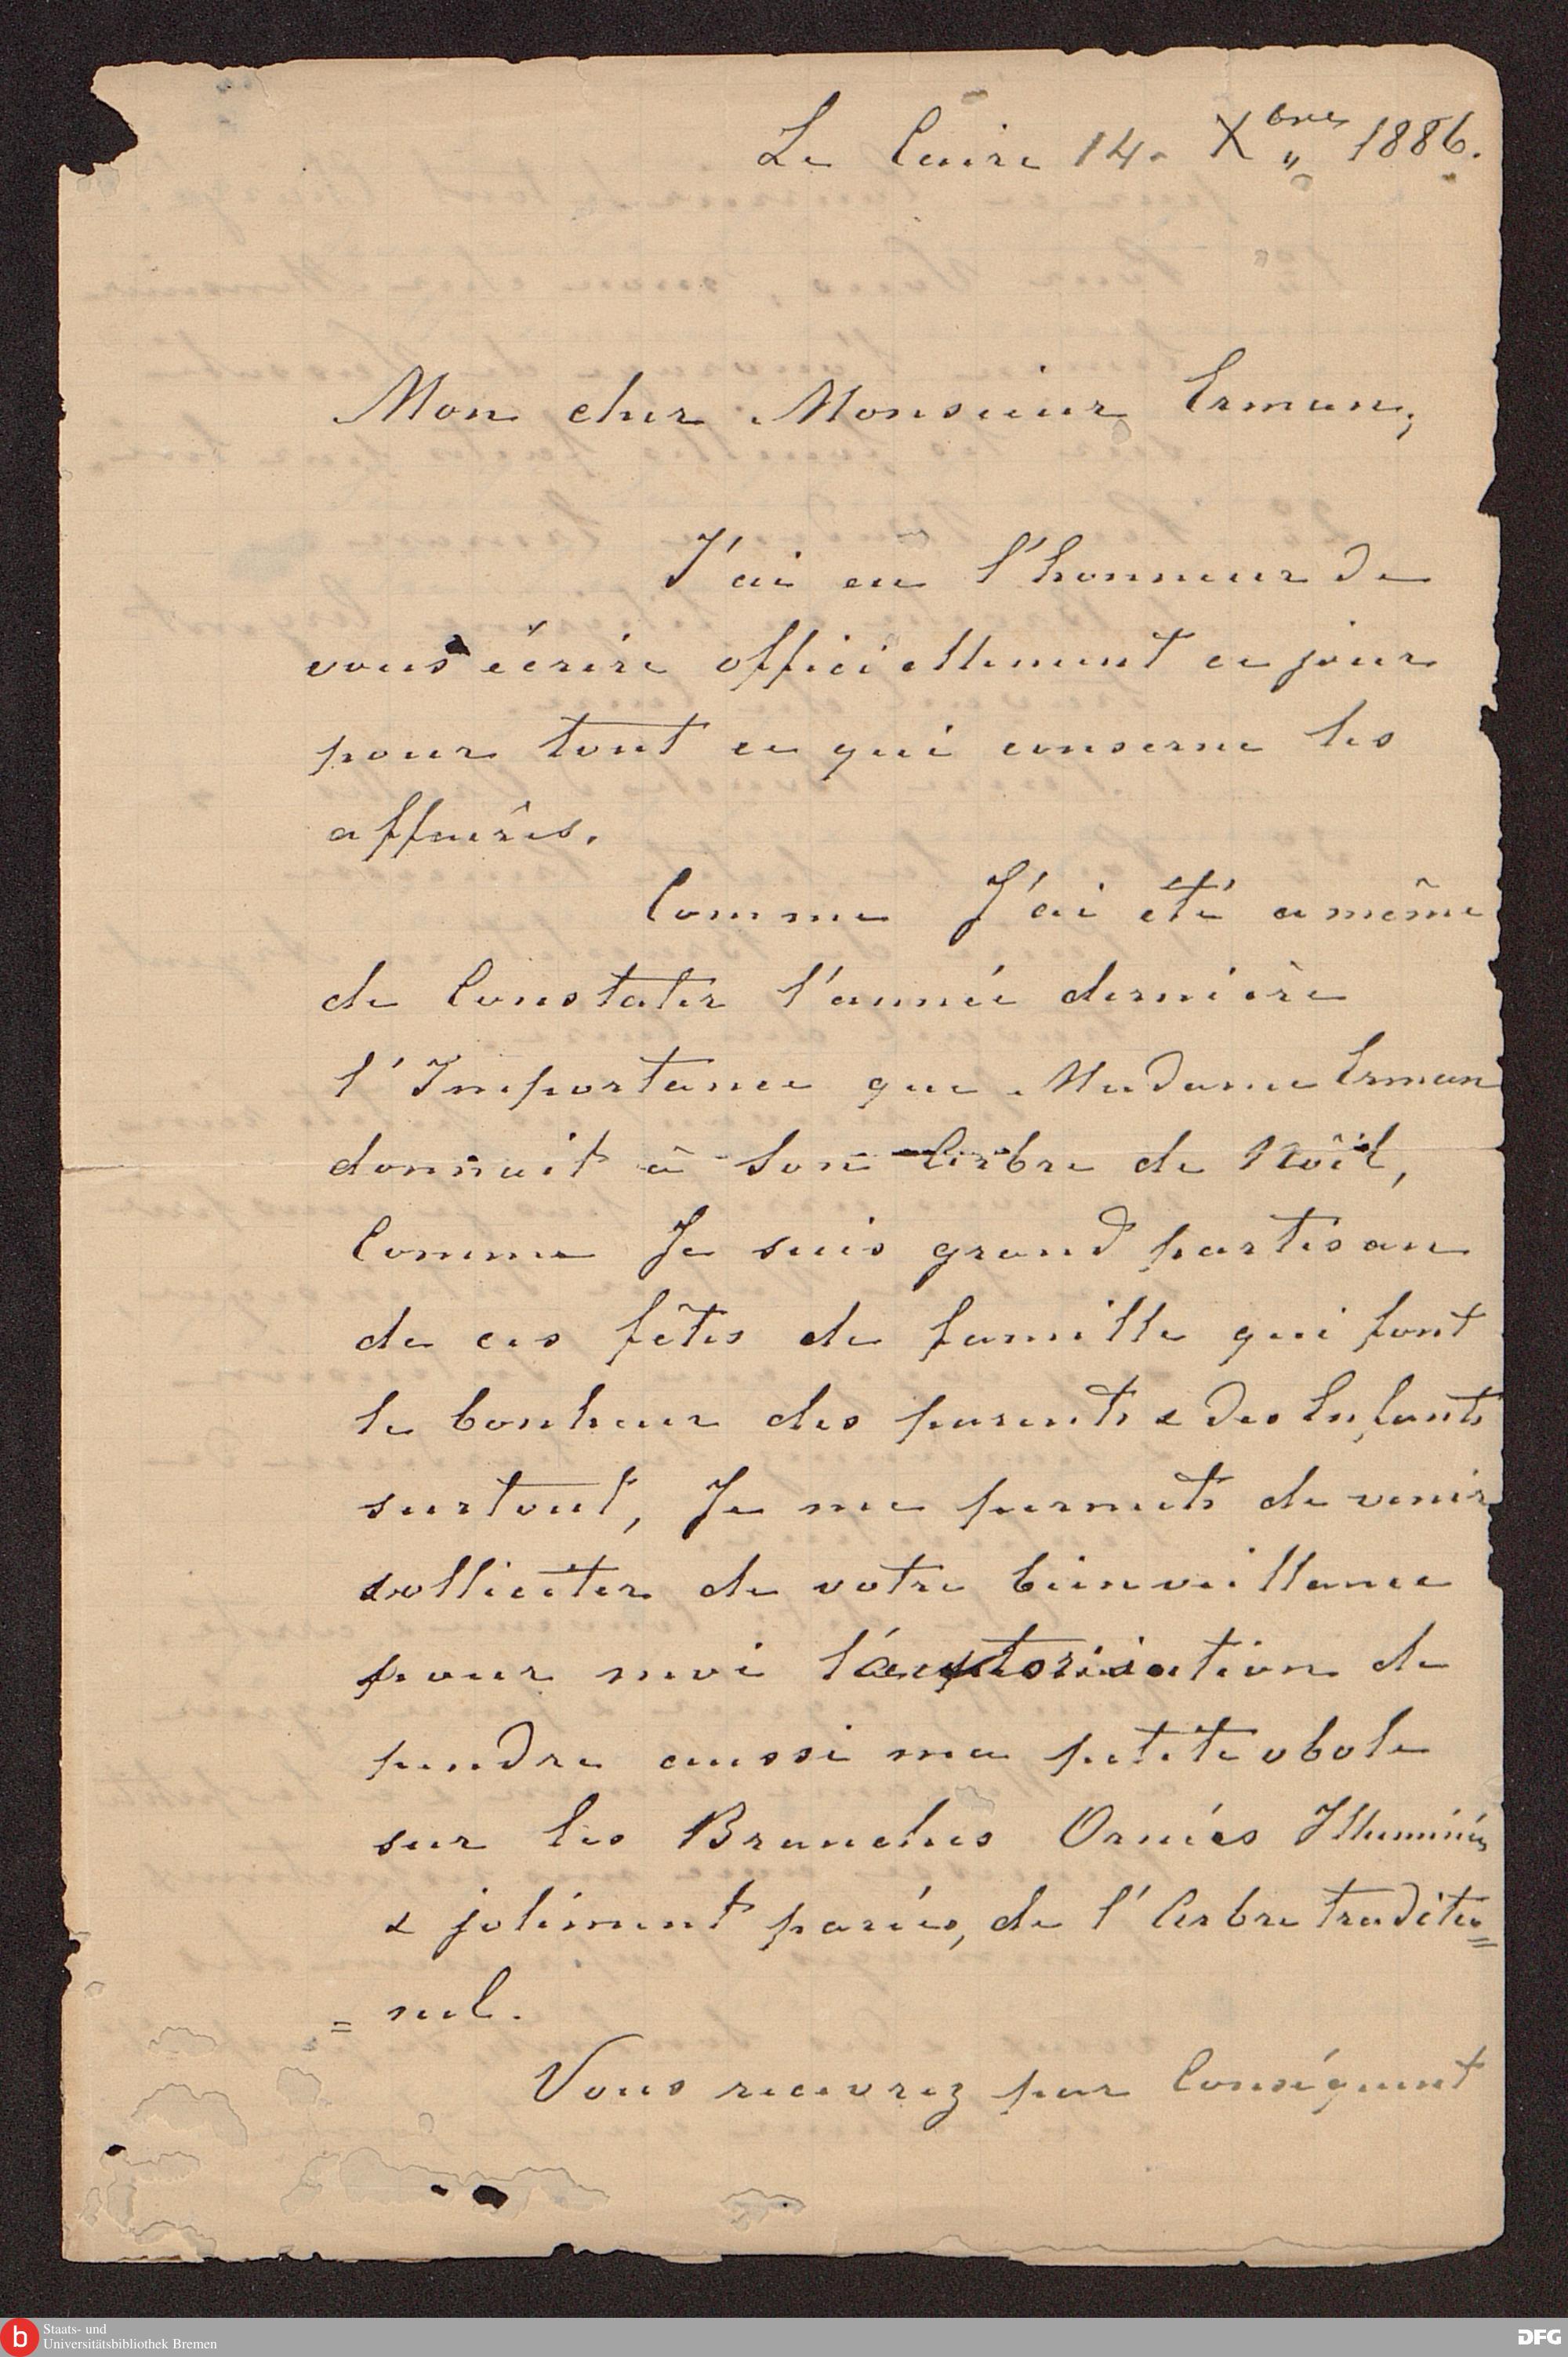 Le Caire 14. Xbre 1886.
Mon cher Monsieur Erman;
J'ai eu l'honneur de
vous écrire officiellement ce jour
pour tout ce qui conserne les
affaires.
Comme J'ai été a même
de Constater l'année dernière
l'Importance que Madame Erman
donnait à Son Arbre de Noël,
Comme Je suis grand partisan
de ces fêtes de famille qui font
le bonheur des parents & des Enfants
surtout, Je me permets de venir
solliciter de votre bienveillance
pour moi l'autorisation de
pendre aussi ma petite obole
sur les Branches Ornées Illuminées
& joliment parées, de l'Arbre traditio=
=nel.
Vous recevrez par Conséquent
b Staats- und
Universitätsbibliothek Bremen
DFG